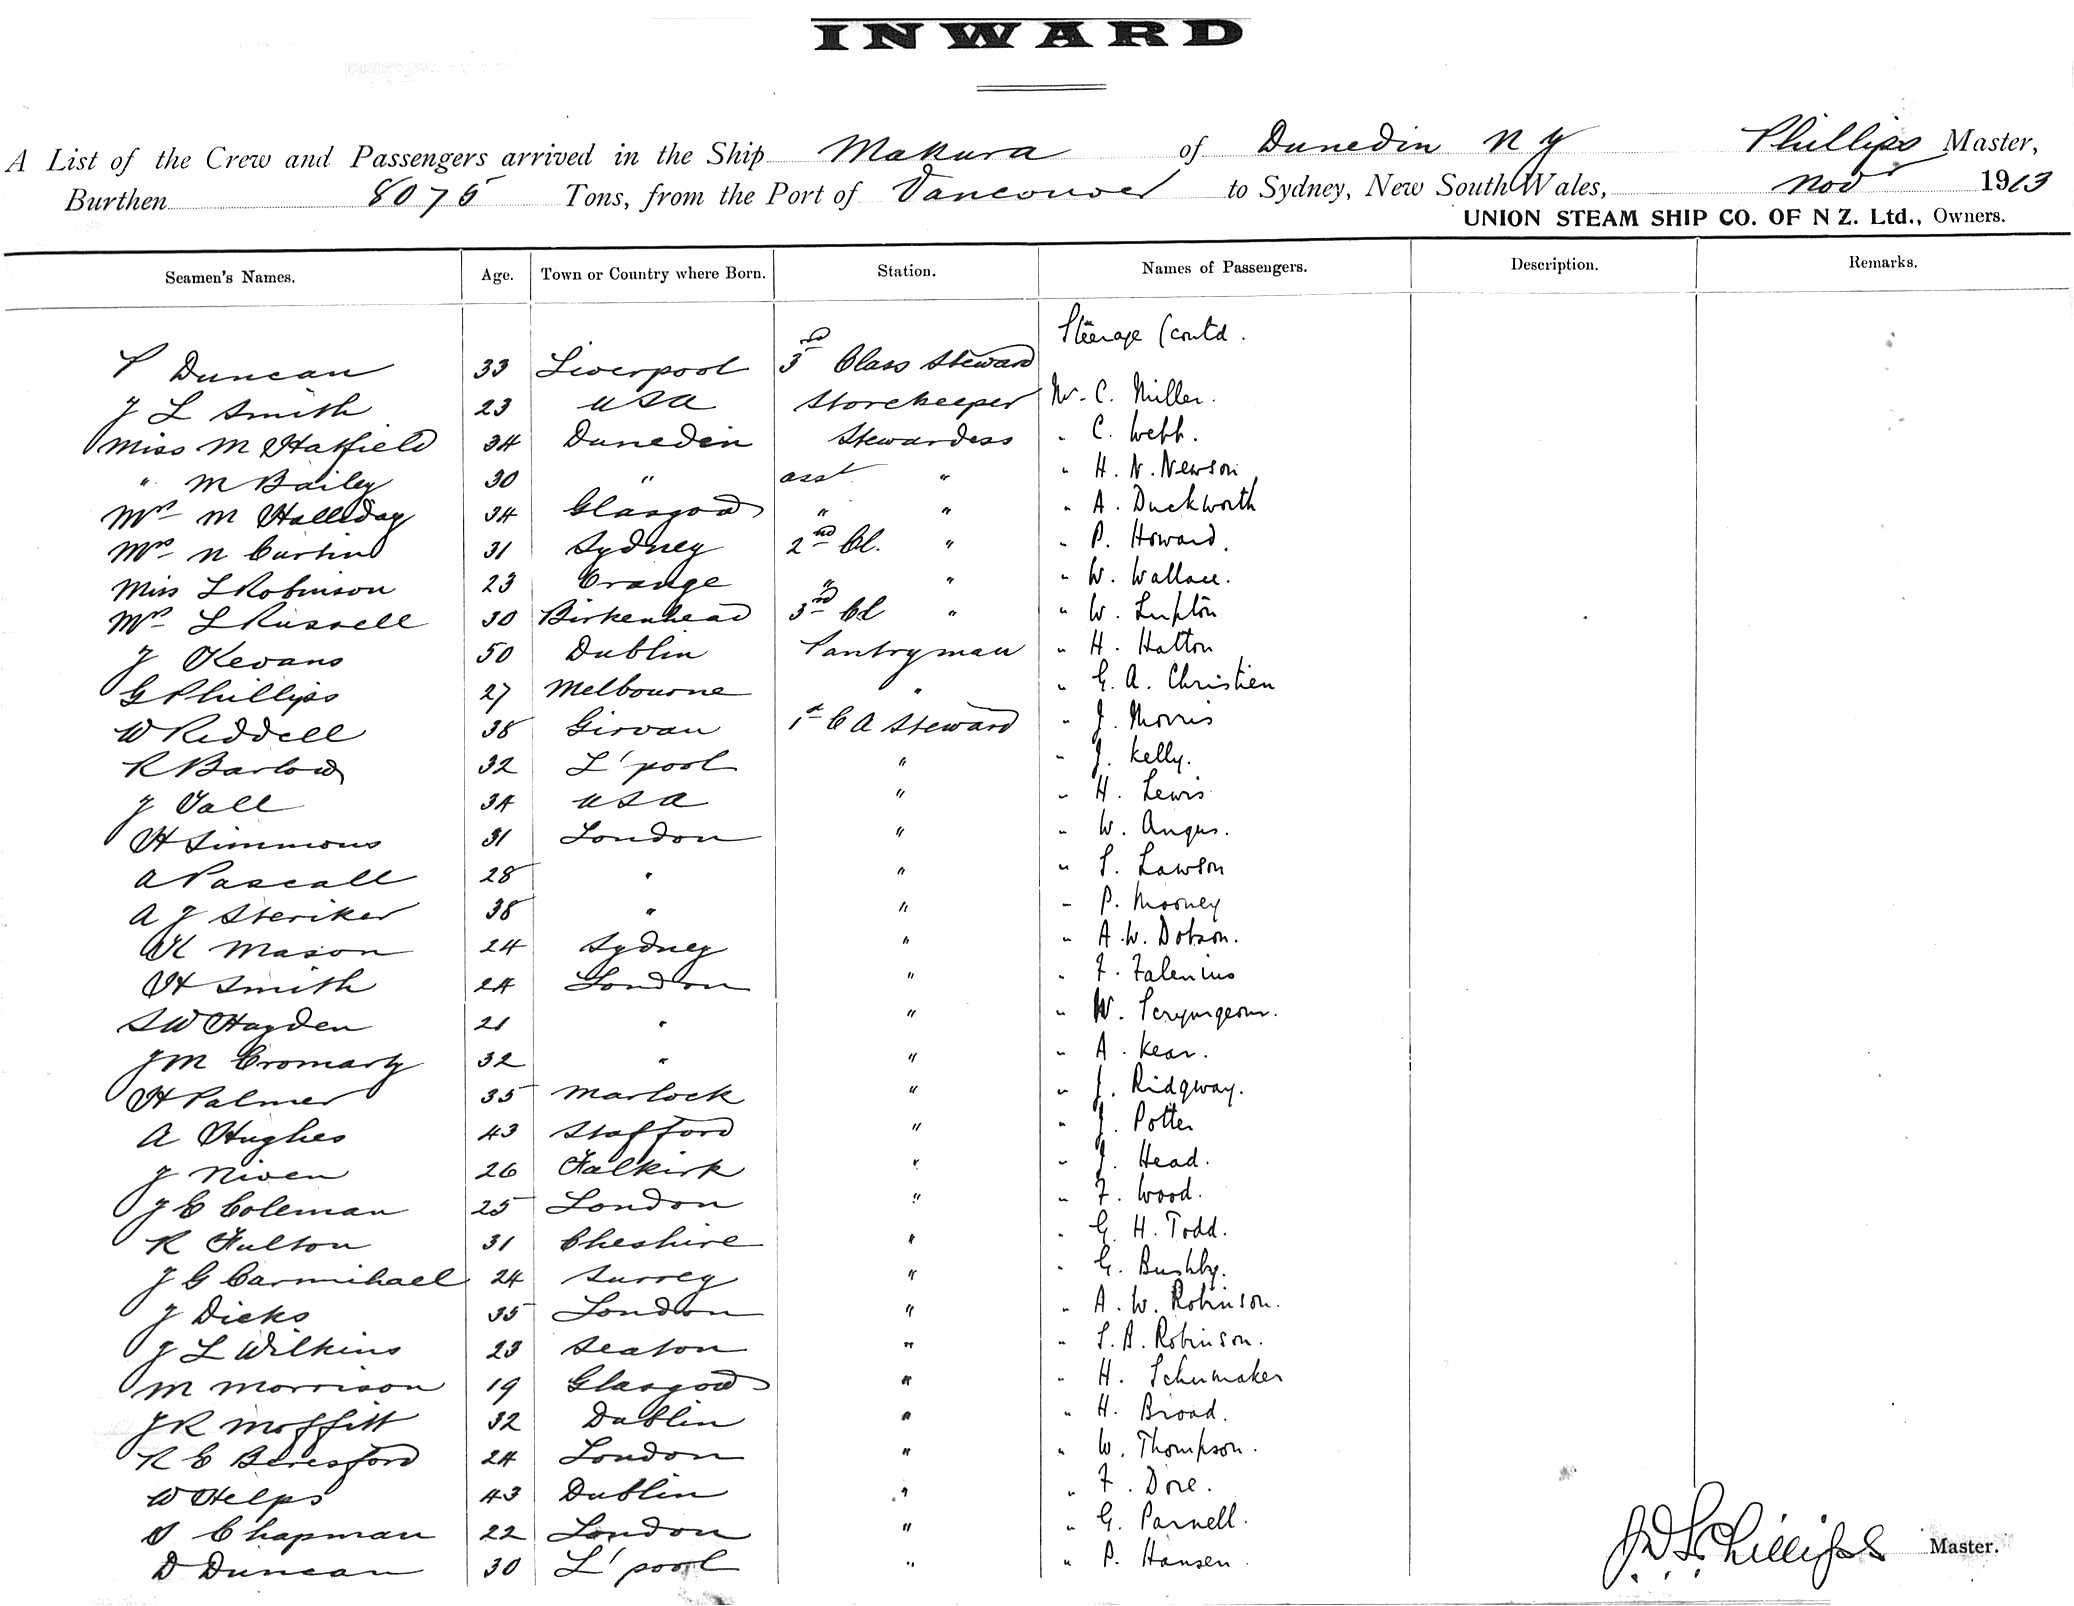 INWARD
A List of the Crew and Passengers arrived in the Ship Makura of Dunedin N Z Phillips Master,
Burthen 8075 Tons, from the Port of Vancouver to Sydney, New South Wales, Nov 1913
UNION STEAM SHIP CO. OF N Z. Ltd., Owners.
Seamen's Names. Age. Town or Country where Born. Station. Names of Passengers. Description. Remarks.
Steerage (contd.
P Duncan 33 Liverpool 3rd Class Steward
J L Smith 23 USA Storekeeper Mr. C. Miller.
Miss M Hatfield 34 Dunedin Stewardess " C. Webb.
" M Bailey 30 " asst " " H. N. Newson
Mrs M Halliday 34 Glasgow " " " A. Duckworth
Mrs N Curtin 31 Sydney 2nd Cl. " " P. Howard.
Miss L Robinson 23 Orange " " " W. Wallace.
Mrs L Russell 30 Birkenhead 3rd Cl " " W. Lupton
J Kevans 50 Dublin Pantryman " H. Hatton
G Phillips 27 Melbourne " " G. A. Christien
W Riddell 38 Girvan 1st C A Steward " J. Morris
R Barlow 32 L'pool " " J. Kelly.
J Tall 34 USA " " H. Lewis
H Simmons 31 London " " W. Angus.
A Pascall 28 " " " S. Lawson
A J Steriker 38 " " " P. Mooney
K Mason 24 Sydney " " A. W. Dobson.
H Smith 24 London " " F. Falenius
S W Hayden 21 " " " W. Scrymgeour.
J M Cromarty 32 " " " A. Kear.
H Palmer 35 Marlock " " J. Ridgway.
A Hughes 43 Stafford " " J. Potter
J Niven 26 Falkirk " " J. Head.
J C Coleman 25 London " " F. Wood.
R Fulton 31 Cheshire " " G. H. Todd.
J G Carmihael 24 Surrey " " G. Bushby.
J Dicks 35 London " " A. W. Robinson.
J L Wilkins 23 Seaton " " S. A. Robinson.
M Morrison 19 Glasgow " " H. Schumaker
J R Moffitt 32 Dublin " " H. Broad.
R C Beresford 24 London " " W. Thompson.
W Helps 43 Dublin " " F. Dore.
S Chapman 22 London " " G. Parnell.
D Duncan 30 L'pool " " P. Hansen.
J D S Phillips Master.